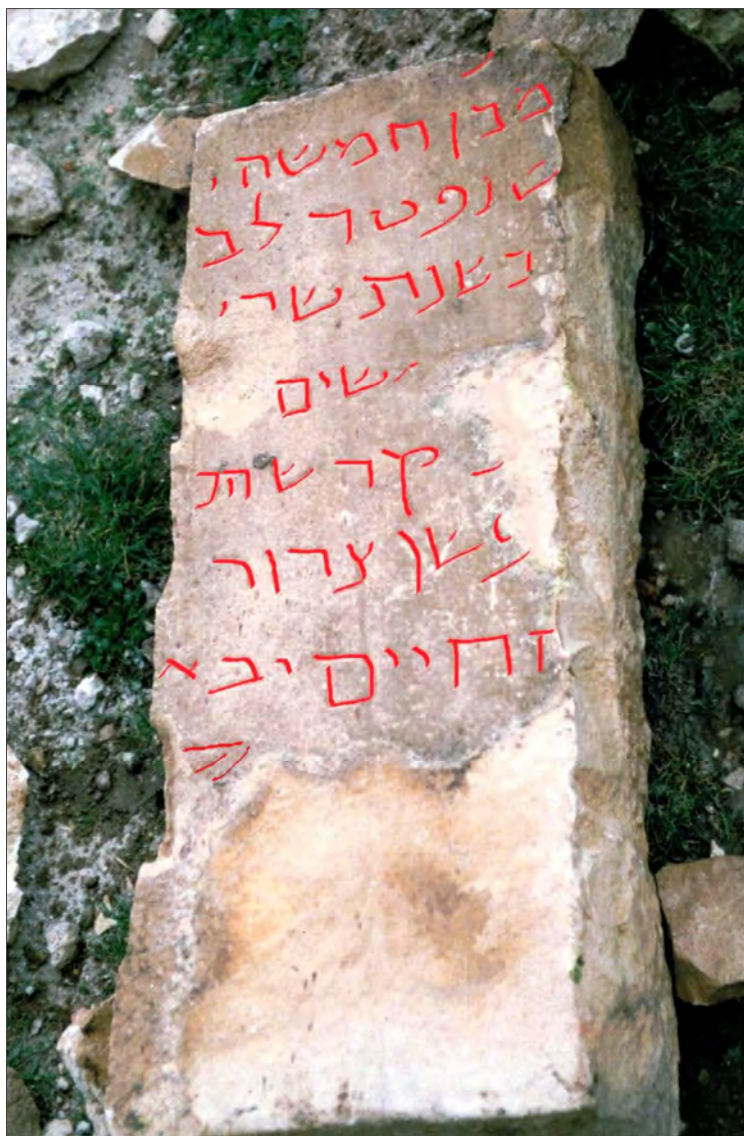 מבן חמשה
שנפטר לב
בשנת שר
שים
קדשת
שן צרור
החיים יבא